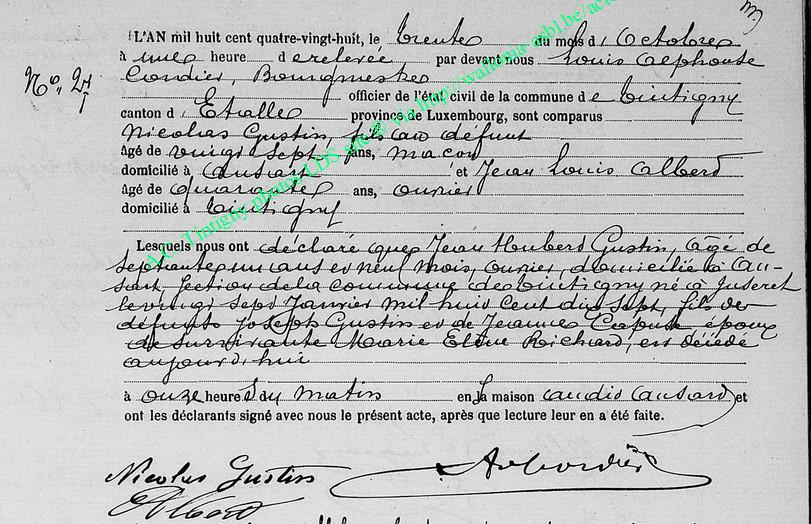 L'AN mil huit cent quatre-vingt-huit, le trente du mois d'Octobre
à une heure de relevée par devant nous Louis Alphonse
Cordier Bourgmestre
No. 27
officier de l'état civil de la commune de Tintigny
canton d'Etalle province de Luxembourg, sont comparus
Nicolas Gustin, fils au défunt
âgé de vingt sept ans, maçon
domicilié à Ansart et Jean Louis Albert
âgé de quarante ans, ouvrier
domicilié à Tintigny
Lesquels nous ont déclaré que Jean Hubert Gustin, âgé de
septante un ans et neuf mois, ouvrier, domicilié à An-
sart, section de la commune de Tintigny né à Juseret
le vingt sept Janvier mil huit cent dix sept, fils de
défunts Joseph Gustin et de Jeanne époux
de survivante Marie Richard, est décédé
aujourd'hui
à onze heures du matin en sa maison audit Ansart et
ont les déclarants signé avec nous le présent acte, après que lecture leur en a été faite.
Nicolas Gustin
Albert
A.C. Tintigny photos LDS via http://wallonia-asbl.be/